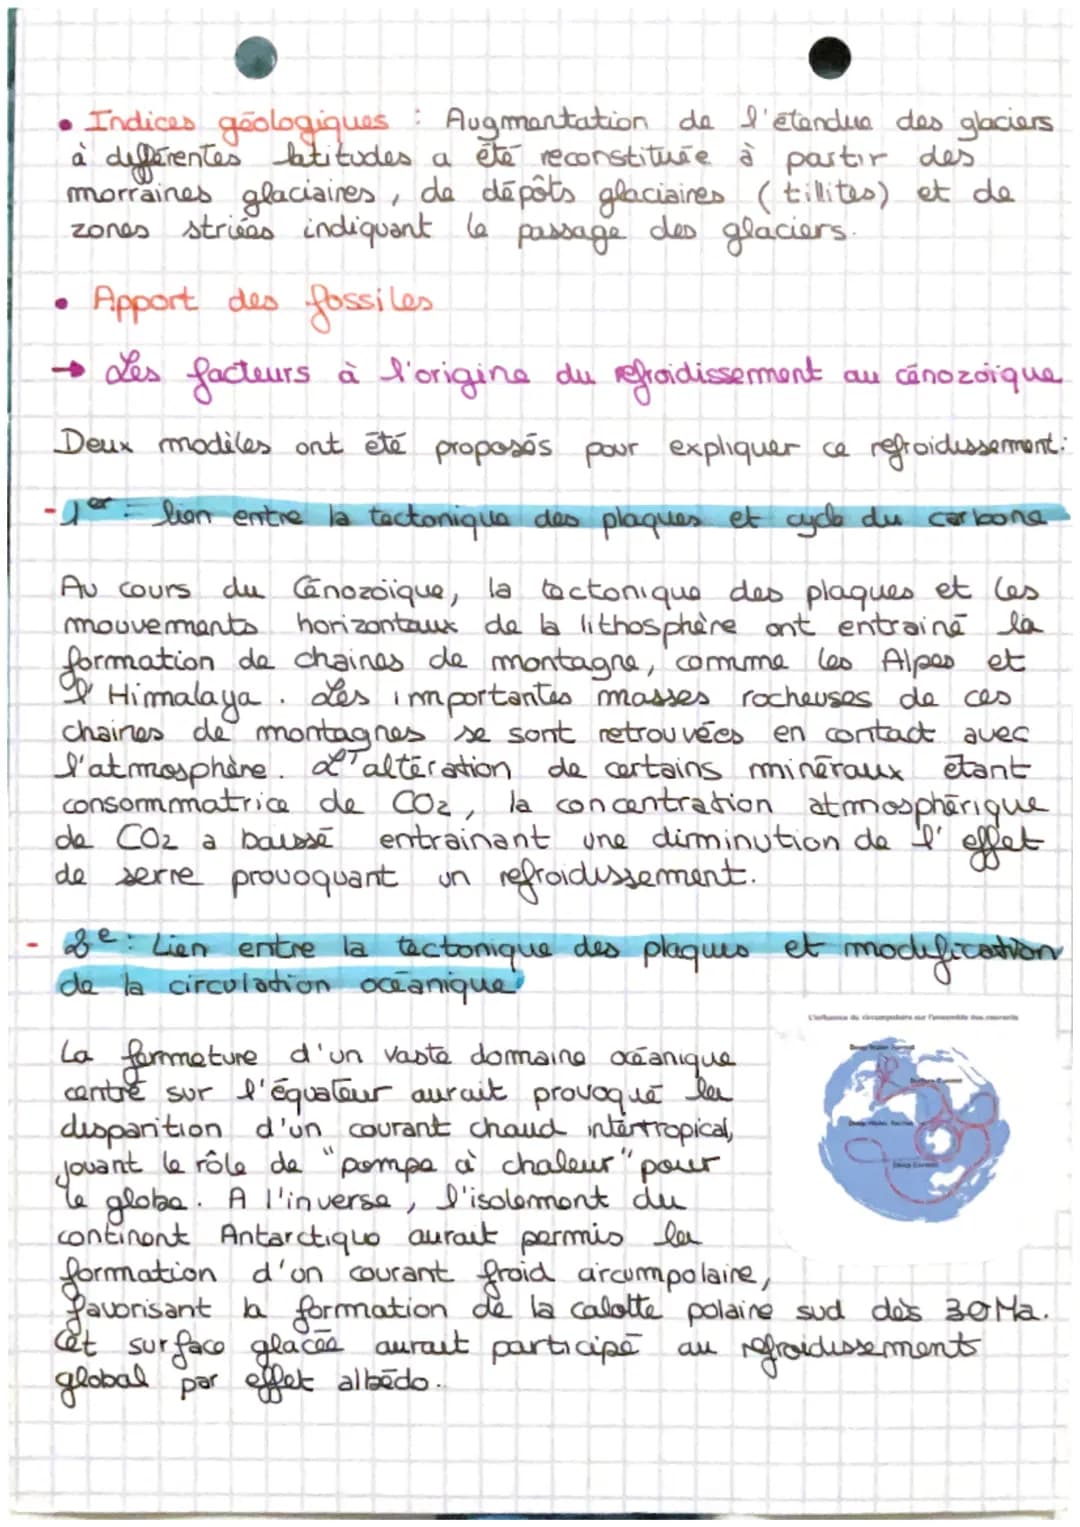 • Indices géologiques : Augmentation de l'étendue des glaciers
à différentes latitudes a été reconstituée à partir des
morraines glaciaires, de dépôts glaciaires (tillites) et de
zones striées indiquant le passage des glaciers.
• Apport des fossiles
→ Les facteurs à l'origine du refroidissement au cénozoïque
Deux modèles ont été proposés pour expliquer ce refroidissement:
- 1er = lien entre la tectonique des plaques et cycle du carbone
Au cours du Cénozoïque, la tectonique des plaques et les
mouvements horizontaux de la lithosphère ont entrainé la
formation de chaines de montagne, comme les Alpes et
l'Himalaya. Les importantes masses rocheuses de ces
chaines de montagnes se sont retrouvées en contact avec
l'atmosphère. L'altération de certains minéraux étant
consommatrice de CO2, la concentration atmosphérique
de CO2 a baissé entrainant une diminution de l'effet
de serre provoquant un refroidissement.
- 2e: Lien entre la tectonique des plaques et modification
de la circulation océanique
L'influence du circumpolaire sur l'ensemble des courants
La fermeture d'un vaste domaine océanique
centré sur l'équateur aurait provoqué la
disparition d'un courant chaud intertropical,
jouant le rôle de "pompe à chaleur" pour
le globe. A l'inverse, l'isolement du
continent Antarctique aurait permis la
formation d'un courant froid circumpolaire,
favorisant la formation de la calotte polaire sud dès 30Ma.
Cet surface glacée aurait participé au refroidissements
global par effet albédo.